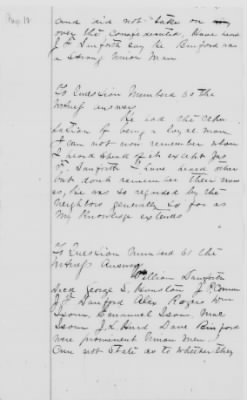 Pag 18
and did not take on
over the Confederates, have heard
J. F. Sanforth say he Binford was
a strong Union Man
To Question Numbered 60 the
witness answers
He had the
of being a loyal man
I can not now remember whom
I heard speak of it except Jas
F. Sanforth I have heard others
but don't remember their names
so, he was so regarded by the
Neighbors generally so far as
My Knowledge extends
To Question Numbered 61 the
witness Answers
William Danforth
George S. Houston J.
J. F. Sanford Alex Rogers Wm
Isom, Emanuel Isom, Mac
Isom J. L. Hurd Dave Binford
were prominent Union Men
Can not State as to whether they